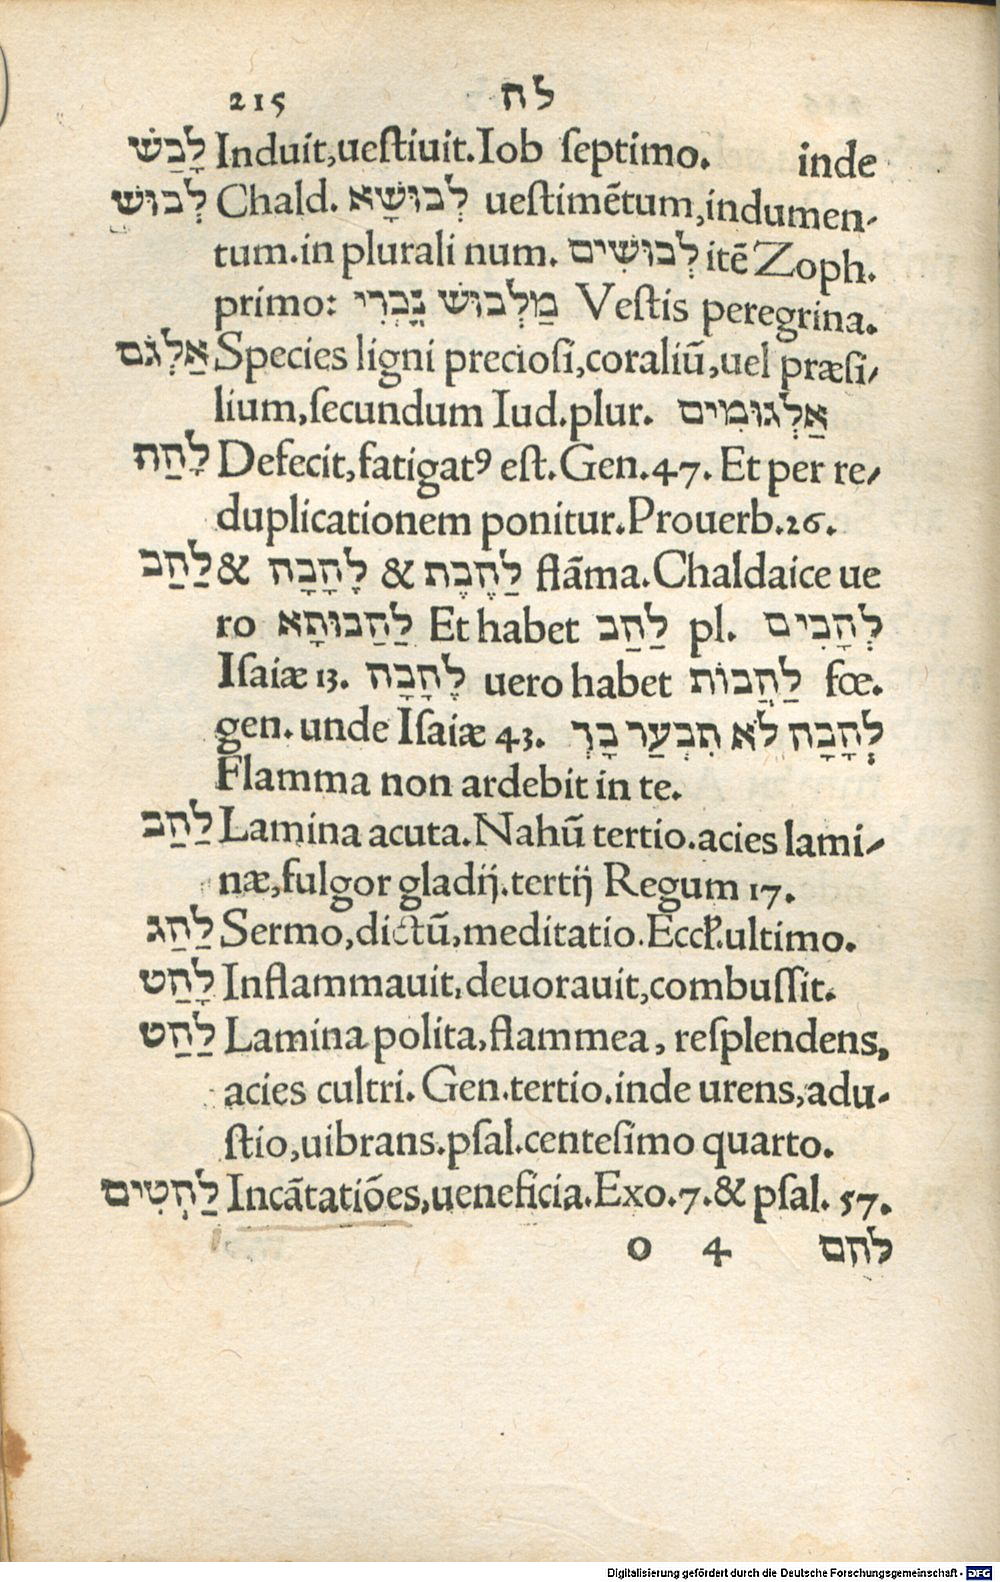 215 לה
לָבַשׁ Induit,ueſtiuit.Iob ſeptimo. inde
לְבוּשׁ Chald. לְבוּשָׁא ueſtimētum,indumen-
tum.in plurali num. לְבוּשִׁים itē Zoph.
primo: מַלְבוּשׁ נָכְרִי Veſtis peregrina.
אַלְגֹּם Species ligni precioſi,coraliū,uel præſi-
lium,ſecundum Iud.plur. אַלְגוּמִּים
לָהַת Defecit,fatigatꝰ eſt.Gen.47. Et per re-
duplicationem ponitur.Prouerb.26.
לַהַב & לֶהָבָה & לַהֶבֶת flāma.Chaldaice ue
ro לַהַבוּתָא Et habet לַהַב pl. לְהָבִים
Iſaiæ 13. לֶהָבָה uero habet לַהֲבוֹת fœ.
gen. unde Iſaiæ 43. לֶהָבָה לֹא תִבְעַר בָּךְ
Flamma non ardebit in te.
לַהַב Lamina acuta.Nahū tertio.acies lami-
næ,fulgor gladij.tertij Regum 17.
לַהַג Sermo,dictū,meditatio.Eccl.ultimo.
לָהַט Inflammauit,deuorauit,combuſſit.
לַהַט Lamina polita,flammea, reſplendens,
acies cultri. Gen.tertio.inde urens,adu-
ſtio,uibrans.pſal.centeſimo quarto.
לַהְטִים Incātatiōes,ueneficia.Exo.7.& pſal. 57.
o 4 להם
Digitalisierung gefördert durch die Deutsche Forschungsgemeinschaft - DFG